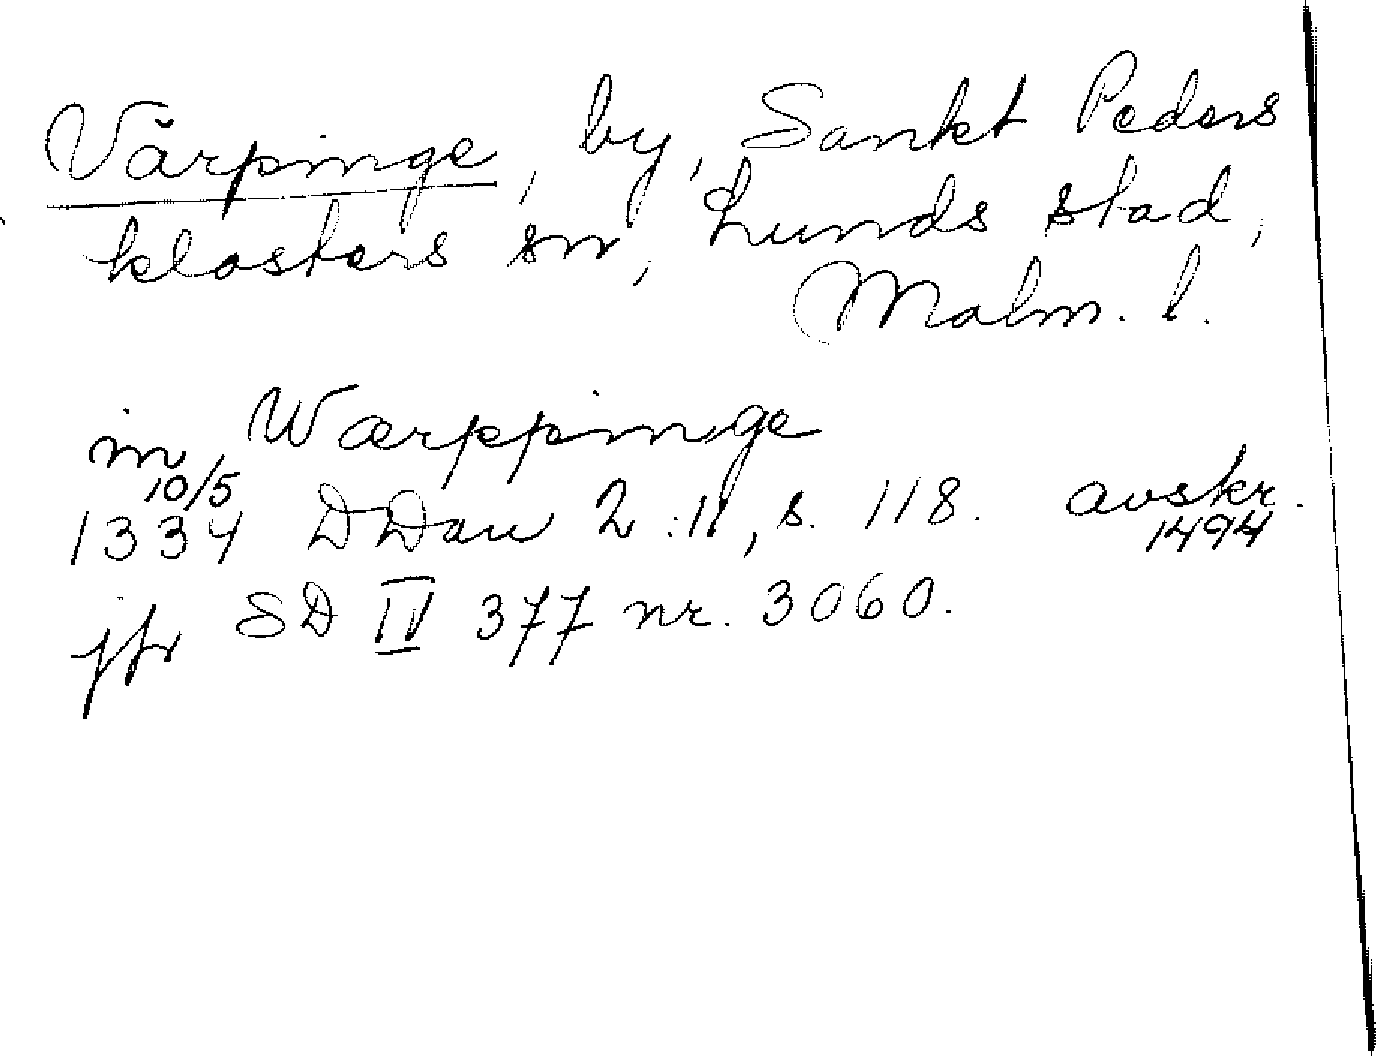 Värpinge, by, Sankt Peders
klosters sn, Lunds stad,
Malm. l.
in Wærppinge
10/5
1334 DDan 2:11, s. 118. avskr.
1494
jfr SD IV 377 nr. 3060.